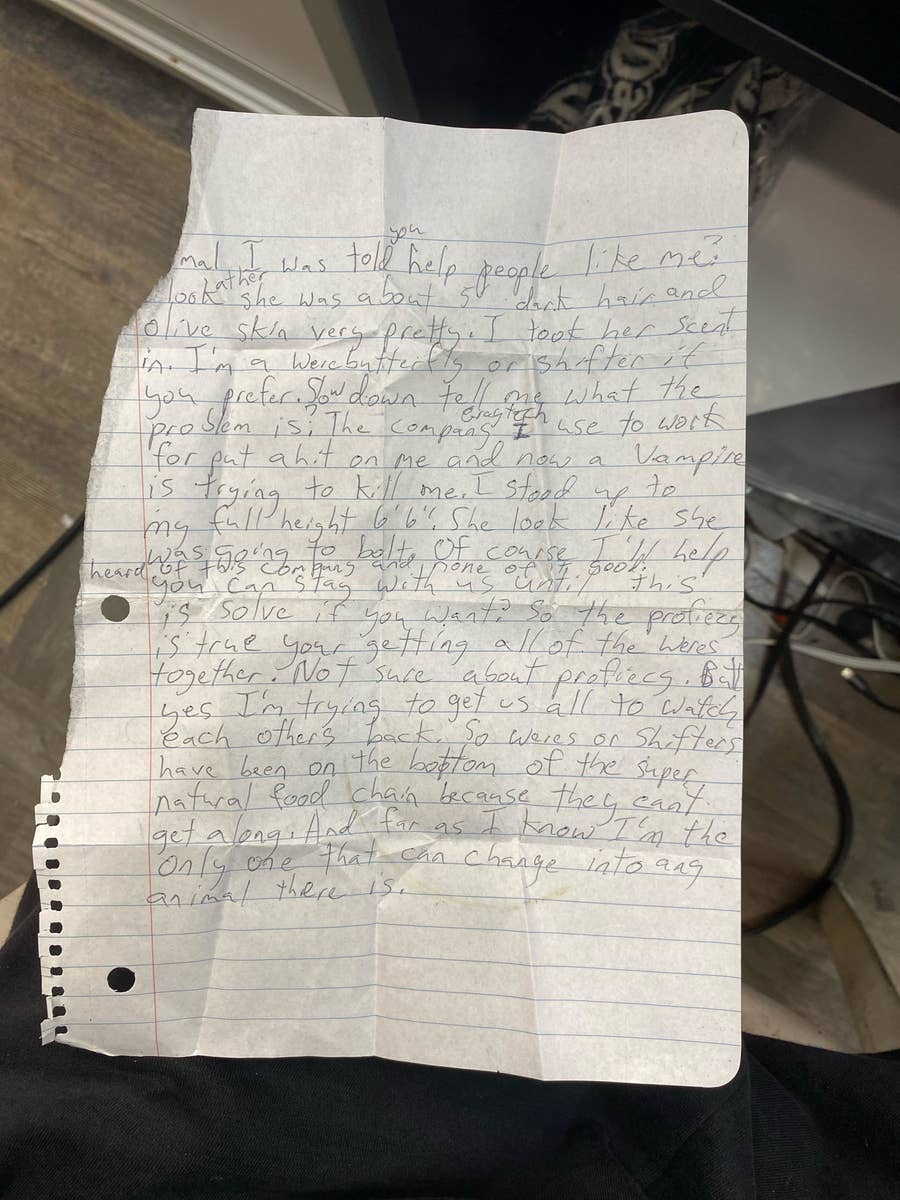 you
mal I was told help people like me?
ather
look she was about 5' dark hair and
olive skin very pretty. I took her scent
in. I'm a Werebutterfly or shifter if
you prefer. Slow down tell me what the
problem is? The company I use to work
for put a hit on me and now a Vampire
is trying to kill me. I stood up to
my full height 6'6". She look like she
was going to bolt. Of course I'll help
heard of this company and none of it good.
you can stay with us until this
is solve if you want? So the profiecy
is true your getting all of the weres
together. Not sure about profiecy. But
yes I'm trying to get us all to watch
each others back. So weres or Shifters
have been on the bottom of the super
natural food chain because they can't
get along. And far as I know I'm the
only one that can change into any
animal there is.